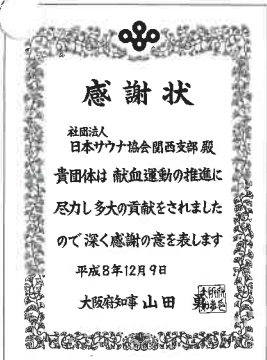 感謝状
社団法人
日本サウナ協会関西支部 殿
貴団体は 献血運動の推進に
尽力し多大の貢献をされました
ので深く感謝の意を表します
平成8年12月9日
大阪府知事 山田 勇